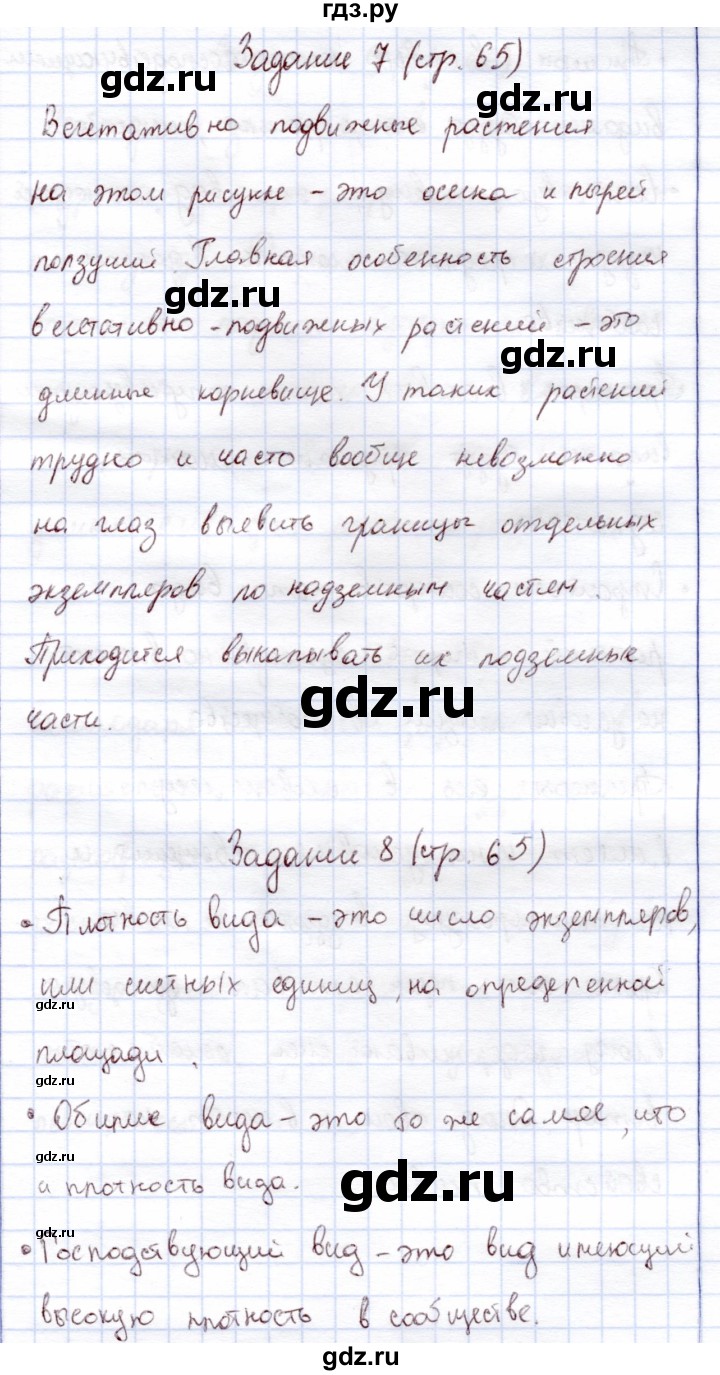 гдз.ру
Задание 7 (стр. 65)
gdz.ru
gdz.ru
Вегетативно подвижные растения
на этом рисунке - это осина и пырей
ползущий. Главная особенность строения
gdz.ru
вегетативно-подвижных растений - это
gdz.ru
длинные корневище. У таких растений
трудно и часто вообще невозможно
gdz.ru
на глаз выявить границы отдельных
экземпляров по надземным частям.
Приходится выкапывать их подземные
gdz.ru
части.
Задание 8 (стр. 65)
gdz.ru
• Плотность вида - это число экземпляров,
или счетных единиц, на определенной
gdz.ru
площади.
gdz.ru
• Обилие вида - это то же самое, что
gdz.ru
и плотность вида.
gdz.ru
gdz.ru
• Господствующий вид - это вид имеющий
высокую плотность в сообществе.
gdz.ru